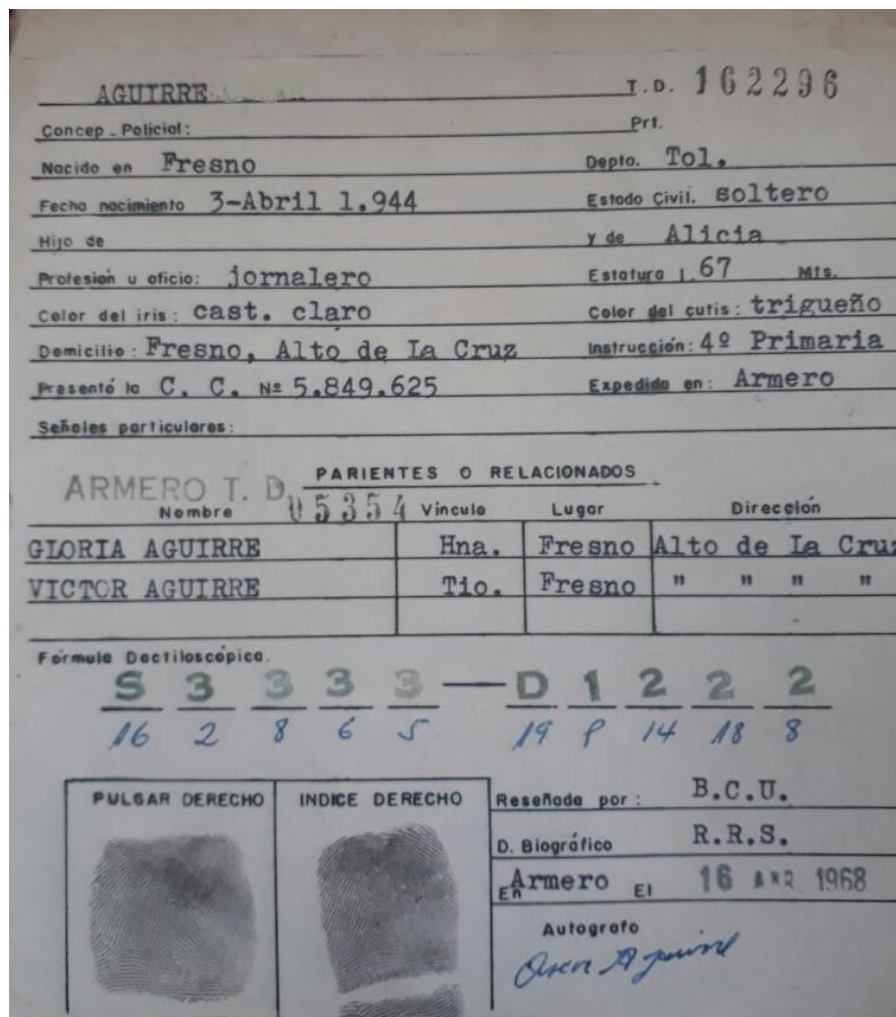 AGUIRRE T.D. 162296
Concep. Policial: Prt.
Nacido en Fresno Depto. Tol.
Fecha nacimiento 3-Abril 1.944 Estado Civil. soltero
Hijo de y de Alicia
Profesión u oficio: jornalero Estatura 1.67 Mts.
Color del iris: cast. claro Color del cutis: trigueño
Domicilio: Fresno, Alto de La Cruz Instrucción: 4º Primaria
Presentó la C. C. Nº 5.849.625 Expedida en: Armero
Señales particulares:
PARIENTES O RELACIONADOS
ARMERO T. D. 05354
Nombre Vínculo Lugar Dirección
GLORIA AGUIRRE Hna. Fresno Alto de La Cruz
VICTOR AGUIRRE Tio. Fresno " " " "
Fórmula Dactiloscópica.
S 3 3 3 3 — D 1 2 2 2
16 2 8 6 5 19 P 14 18 8
PULGAR DERECHO INDICE DERECHO Reseñada por: B.C.U.
D. Biográfico R.R.S.
En Armero El 16 1968
Autografo
Aguirre